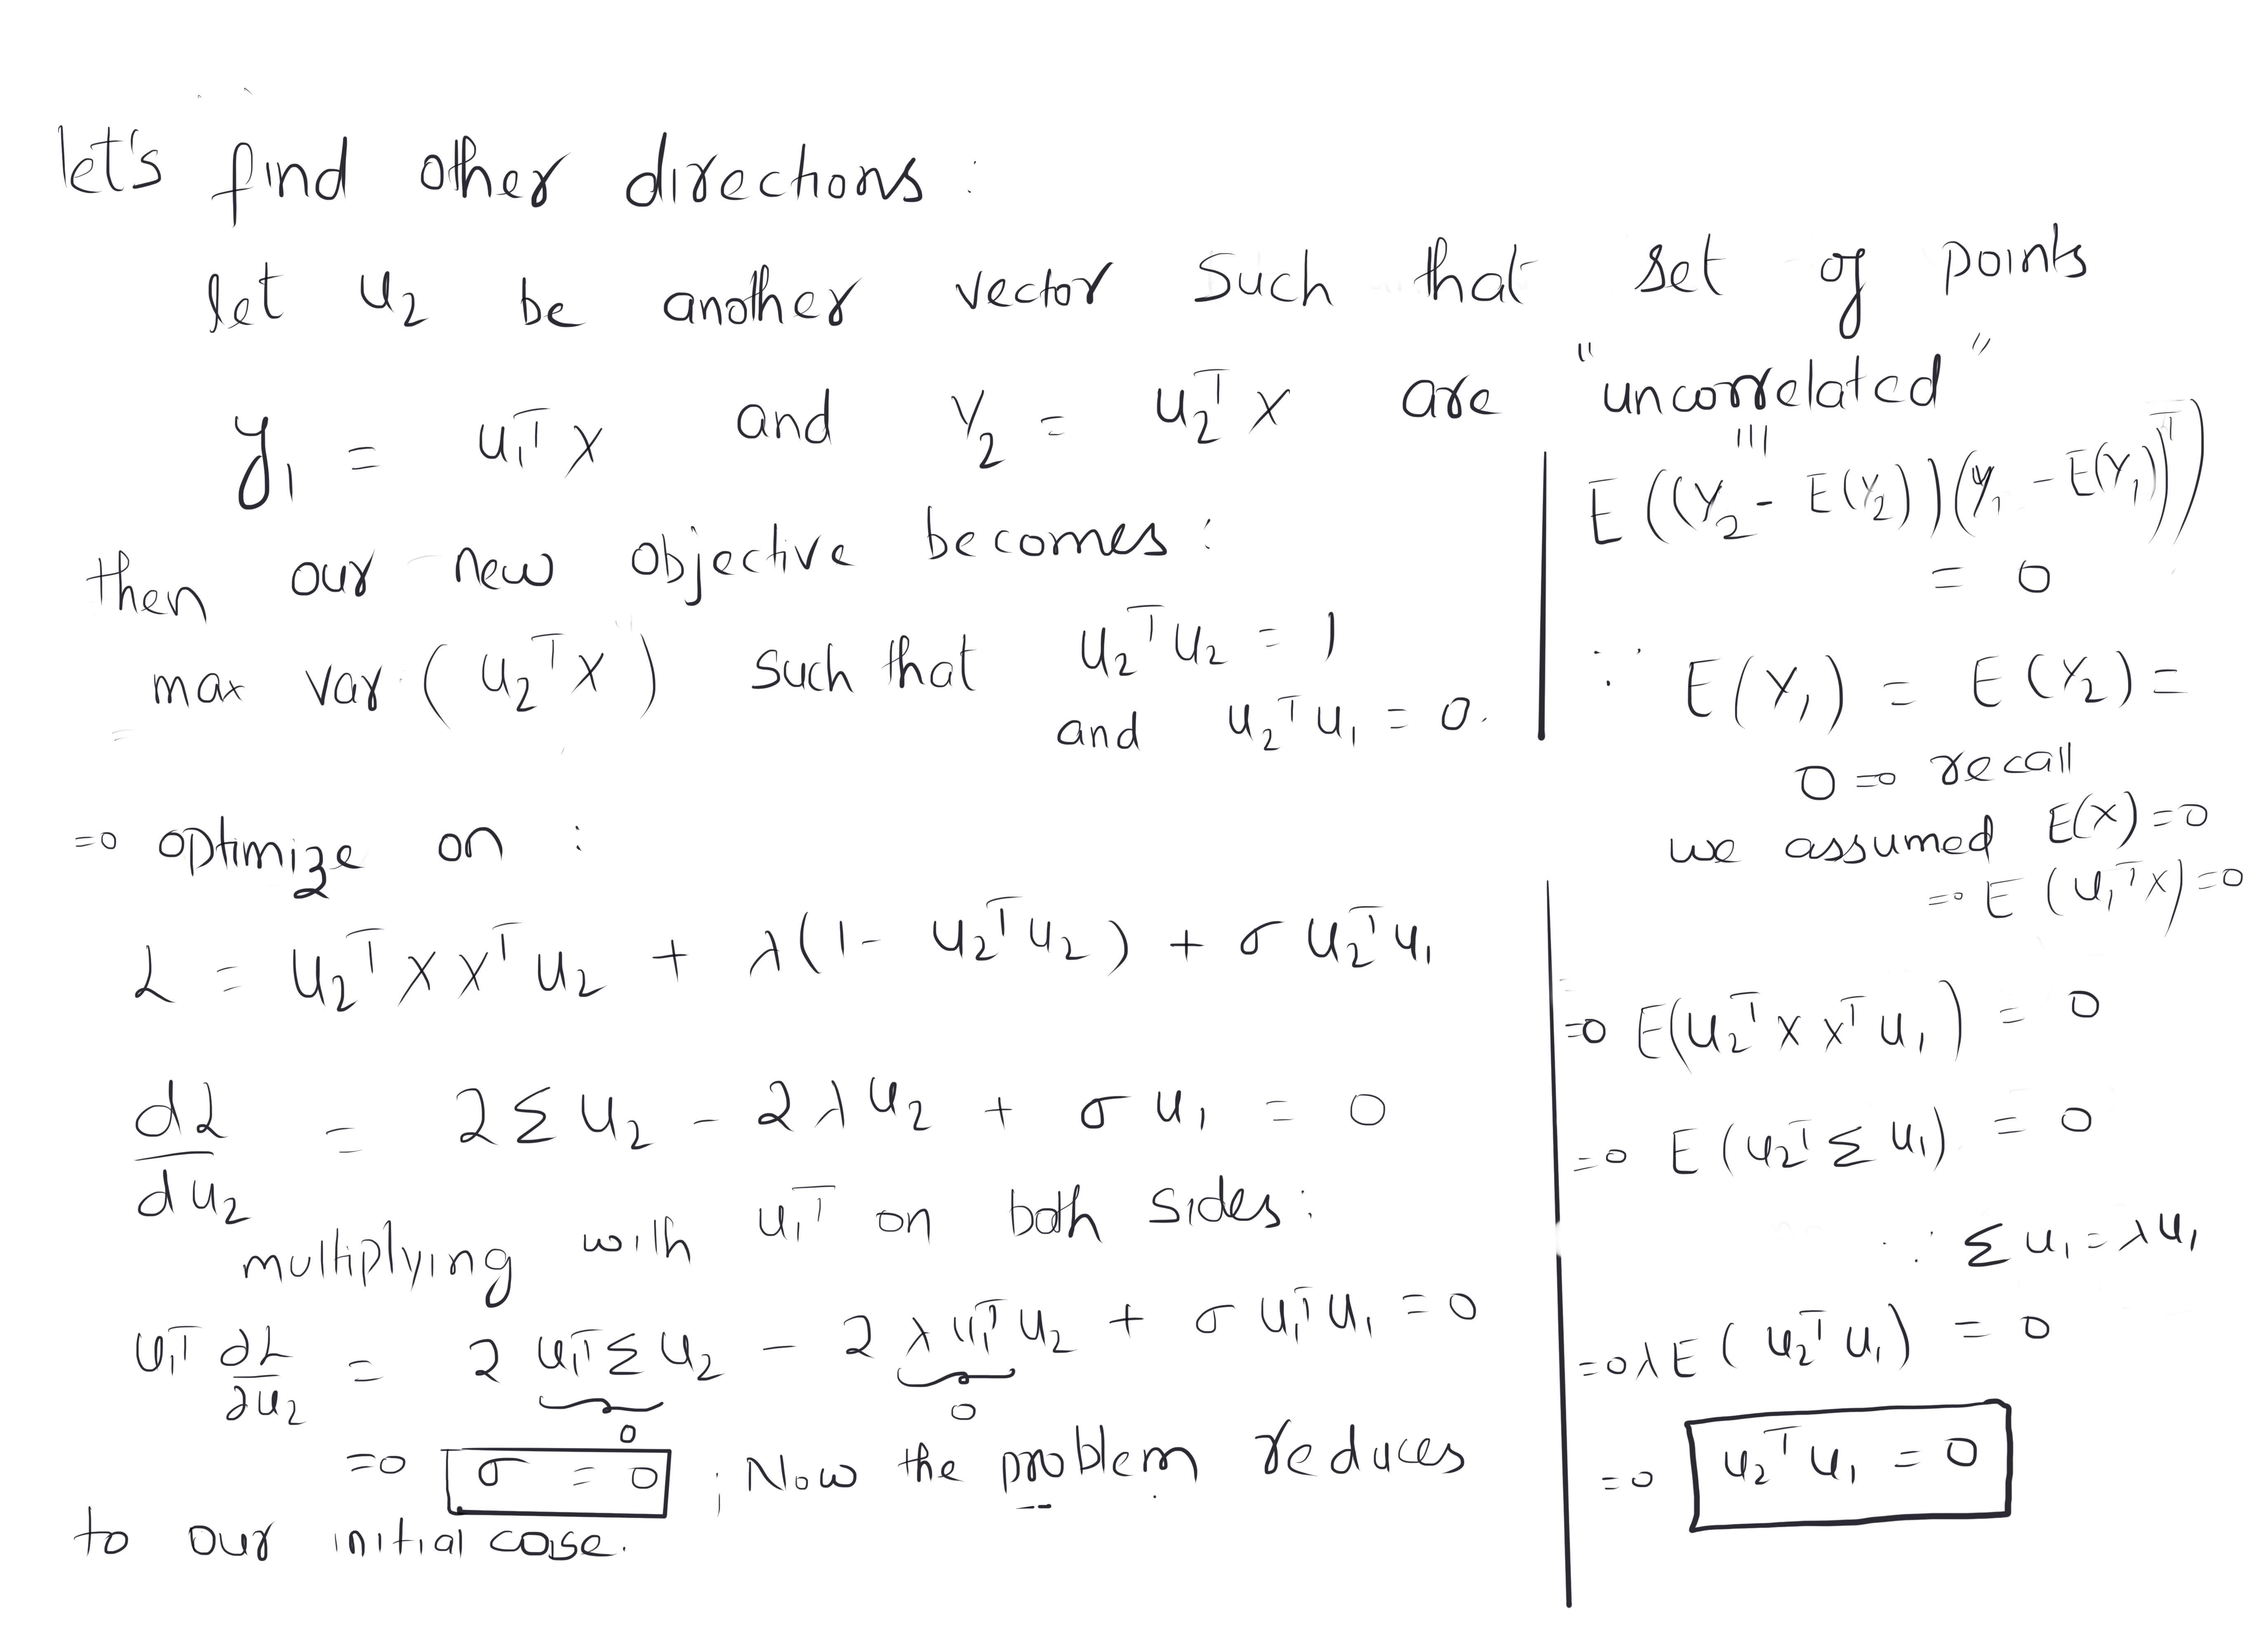 let's find other directions :
let u₂ be another vector such that set of points
y₁ = u₁ᵀx and y₂ = u₂ᵀx are "uncorrelated"
then our new objective becomes :
max var (u₂ᵀx) such that u₂ᵀu₂ = 1
and u₂ᵀu₁ = 0.
⇒ optimize on :
L = u₂ᵀxxᵀu₂ + λ(1 - u₂ᵀu₂) + σ u₂ᵀu₁
dL/du₂ = 2Σu₂ - 2λu₂ + σu₁ = 0
multiplying with u₁ᵀ on both sides :
u₁ᵀ ∂L/∂u₂ = 2 u₁ᵀΣu₂ - 2 λu₁ᵀu₂ + σ u₁ᵀu₁ = 0
0 0
⇒ σ = 0 ; Now the problem reduces
to our initial case.
|||
E((y₂ - E(y₂))(y₁ - E(y₁))ᵀ)
= 0
∵ E(y₁) = E(y₂) =
0 ⇒ recall
we assumed E(x) = 0
⇒ E(u₁ᵀx) = 0
⇒ E(u₂ᵀxxᵀu₁) = 0
⇒ E(u₂ᵀΣu₁) = 0
∵ Σu₁ = λu₁
⇒ λE(u₂ᵀu₁) = 0
⇒ u₂ᵀu₁ = 0